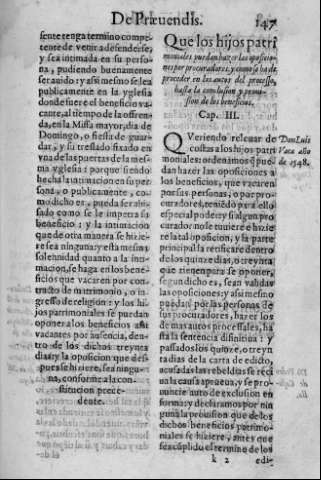 De Præuendis.
147
sente tenga termino compe-
tente de venir a defenderse,
y sea intimada en su perso-
na, pudiendo buenamente
ser auido: y assi mesmo se lea
publicamente en la yglesia
donde fuere el beneficio va-
cante, al tiempo de la offren-
da, en la Missa mayor, dia de
Domingo, o fiesta de guar-
dar, y su treslado fixado en
vna de las puertas de la mes-
ma yglesia: porque siendo
hecha la intimacion en su per
sona, o publicamente, co-
mo dicho es, pueda ser abi-
sado como se le impetra su
beneficio: y la intimacion
que de otra manera se hizie-
re sea ninguna: y esta mesma
solennidad quanto a la inti-
macion, se haga en los bene-
ficios que vacaren por con-
tracto de matrimonio, o in-
gresso de religion: y los hi-
jos patrimoniales se puedan
oponer a los beneficios assi
vacantes por ausencia, den-
tro de los dichos treynta
dias: y la oposicion que des-
pues se hiziere, sea ningu-
na, conforme a la con-
stitucion prece-
dente.
Que los hijos patri
moniales puedan hazer las oposicio-
nes por procuradores, y como se ha de
proceder en los autos del processo,
hasta la conclusion y proui-
sion de los beneficios.
Cap. III.
Queriendo releuar de
costas a los hijos patri
moniales: ordenamos, q̃ pue
dan hazer las oposiciones a
los beneficios, que vacaren
por sus personas, o por pro-
curadores, teniendo para ello
especial poder: y si algun pro
curador no le tuuiere e hizie
re la tal oposicion, y la parte
principal la retificare dentro
de los quinze dias, o treynta
que tienen para se oponer,
segund dicho es, sean validas
las oposiciones: y assi mesmo
puedan por las personas de
sus procuradores, hazer los
de mas autos processales, ha
sta la sentencia difinitiua: y
passados los quinze, o treyn
ta dias de la carta de edicto,
acusadas las rebeldias se reci
ua la causa a prueua, y se pro-
nuncie auto de exclusion en
forma: y declaramos por nin
guna la prouision que de los
dichos beneficios patrimo-
niales se hiziere, antes que
sea cũplido el termino de los
k 2 edi-
Don Luis
Vaca año
de 1548.